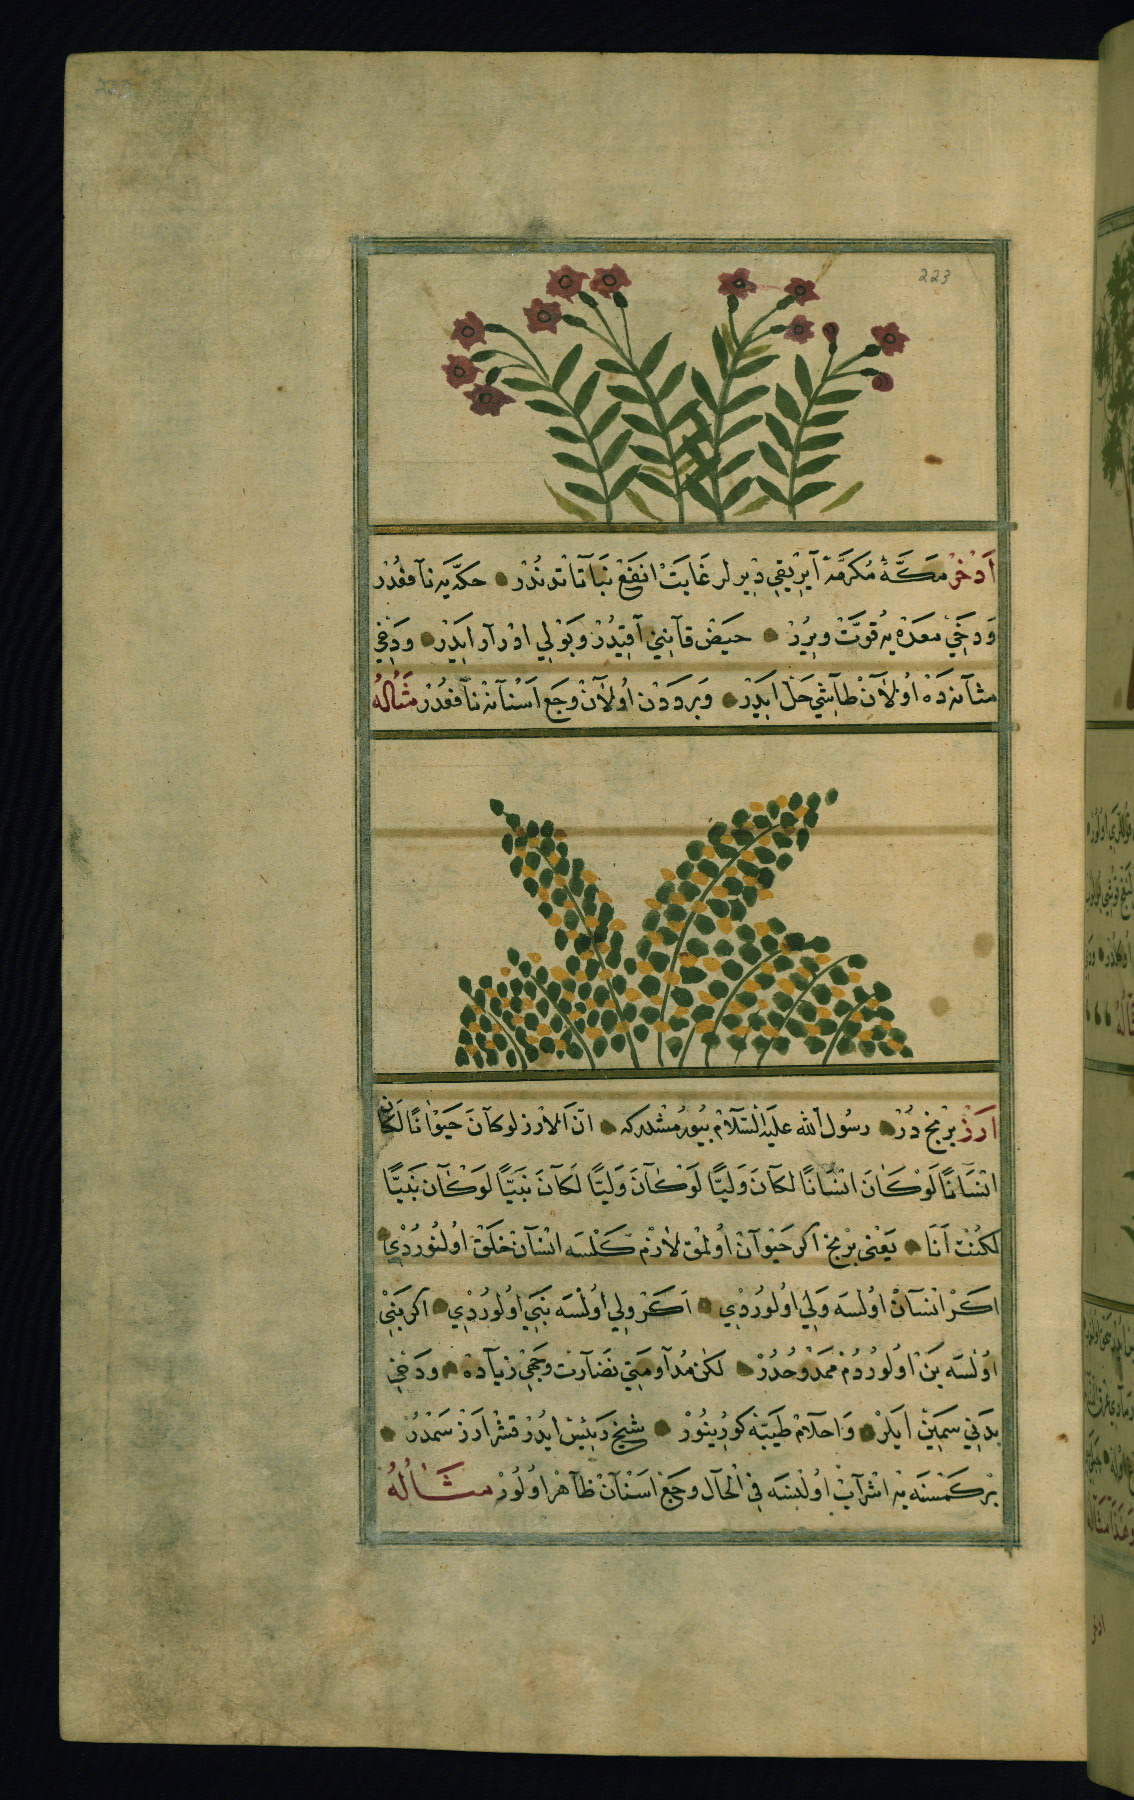 223
اَدْخَرْ مَكَّۀ مُكَرَّمَه آيرِيقِي دِيرلر غَايَتْ انفَعْ نَبَاتَاتدندُرْ حكّه يَه نآفعُدْر
وَدخَيِ معَدَه يه قُوَّتْ ويِرُرْ حَيضْ قآنِنِي آقِيدُرْ وَبَوْلي ادْرآر ايَدرْ وَدَخِي
مثآنه دَه اوُلآنْ طآشِي حَلْ ايَدِرْ وَبَروُدَدْن اوُلآنْ وجَعِ اَسْنآنه نآفعُدْر مثَالُهُ
اَرَزْ برْنج دُرْ رسُول الله عليَه السّلآمْ بيُورُمشْدركه انّ الارز لو كآنَ حَيَوانًا لكَان
انسَانًا لَوْكَانَ انسَانًا لكآنَ وَلِيًّا لَوْكآنَ وَلِيًّا لَكآنَ نَبيًّا لَوْكآن نَبيًّا
لكُنْت اَنَا يَعْني برْنج اكر حَيَوآنْ اوُلمقْ لازْم كَلْسه انسآنْ خلقْ اوُلنُورُدْي
اكَرْ انسآنْ اوُلسه وَلِي اوُلورُدْي اكَرْ ولِي اوُلسَه نَبِي اوُلورُدْي اكر نَبِي
اوُلسَه بَنْ اوُلورُدُمْ ممَدُوحُدُرْ لكن مُدآومَتِي نضَآرت وَجهِي زيآدَه وَدَخِي
بدَنِي سَمِين ايلَرْ وَاحلآمْ طَيّبَه كورُينوُرْ شيخْ رَئِيسْ ايدُرْ قشْر ارَزْ سَمدُرْ
برْكَمْسنَه يه اشرآبْ اوُلنسَه فِي الْحآل وجَعِ اَسنآنْ ظآهرْ اوُلورْ مثَالُهُ